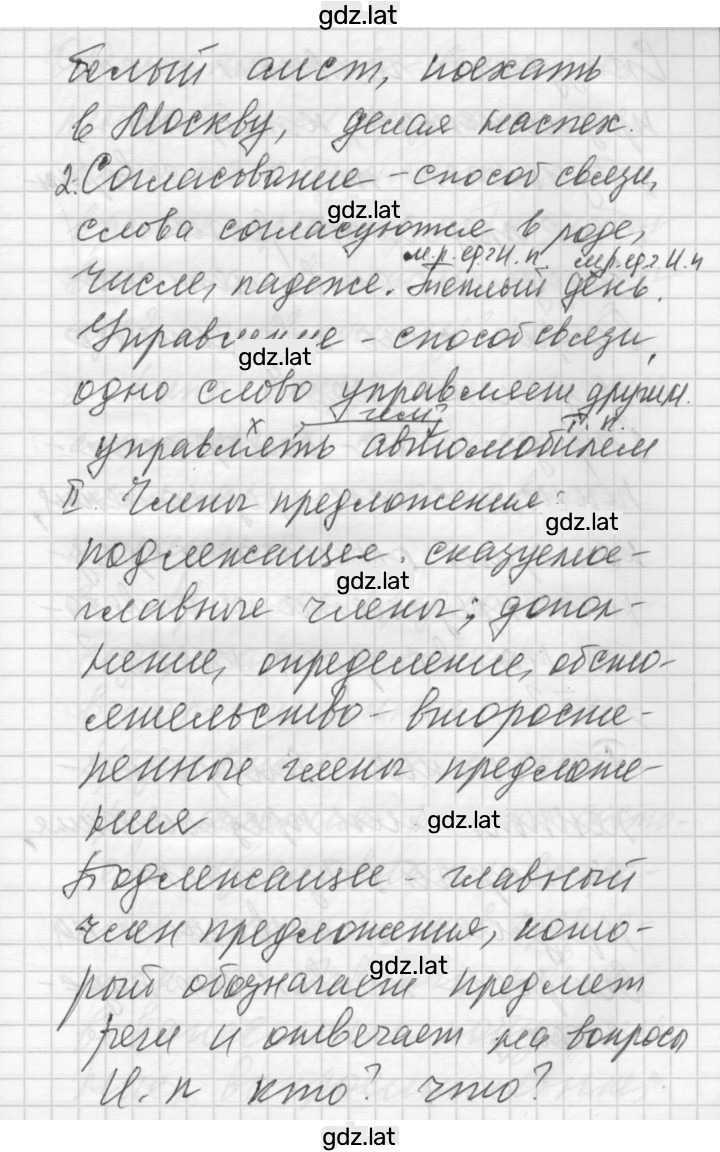 gdz.lat
белый аист, поехать
в Москву, делая наспех.
2. Согласование - способ связи,
gdz.lat
слова согласуются в роде,
м.р. ед.ч И.п. м.р. ед.ч. И.п
числе, падеже. Теплый день.
Управление - способ связи,
gdz.lat
одно слово управляет другим.
х чем? Т. п.
управлять автомобилем
II. Члены предложения:
gdz.lat
подлежащее, сказуемое -
gdz.lat
главные члены; допол-
нение, определение, обсто-
ятельство - второсте-
пенные члены предложе-
ния
gdz.lat
Подлежащее - главный
член предложения, кото-
gdz.lat
рый обозначает предмет
речи и отвечает на вопросы
И. п кто? что?
gdz.lat